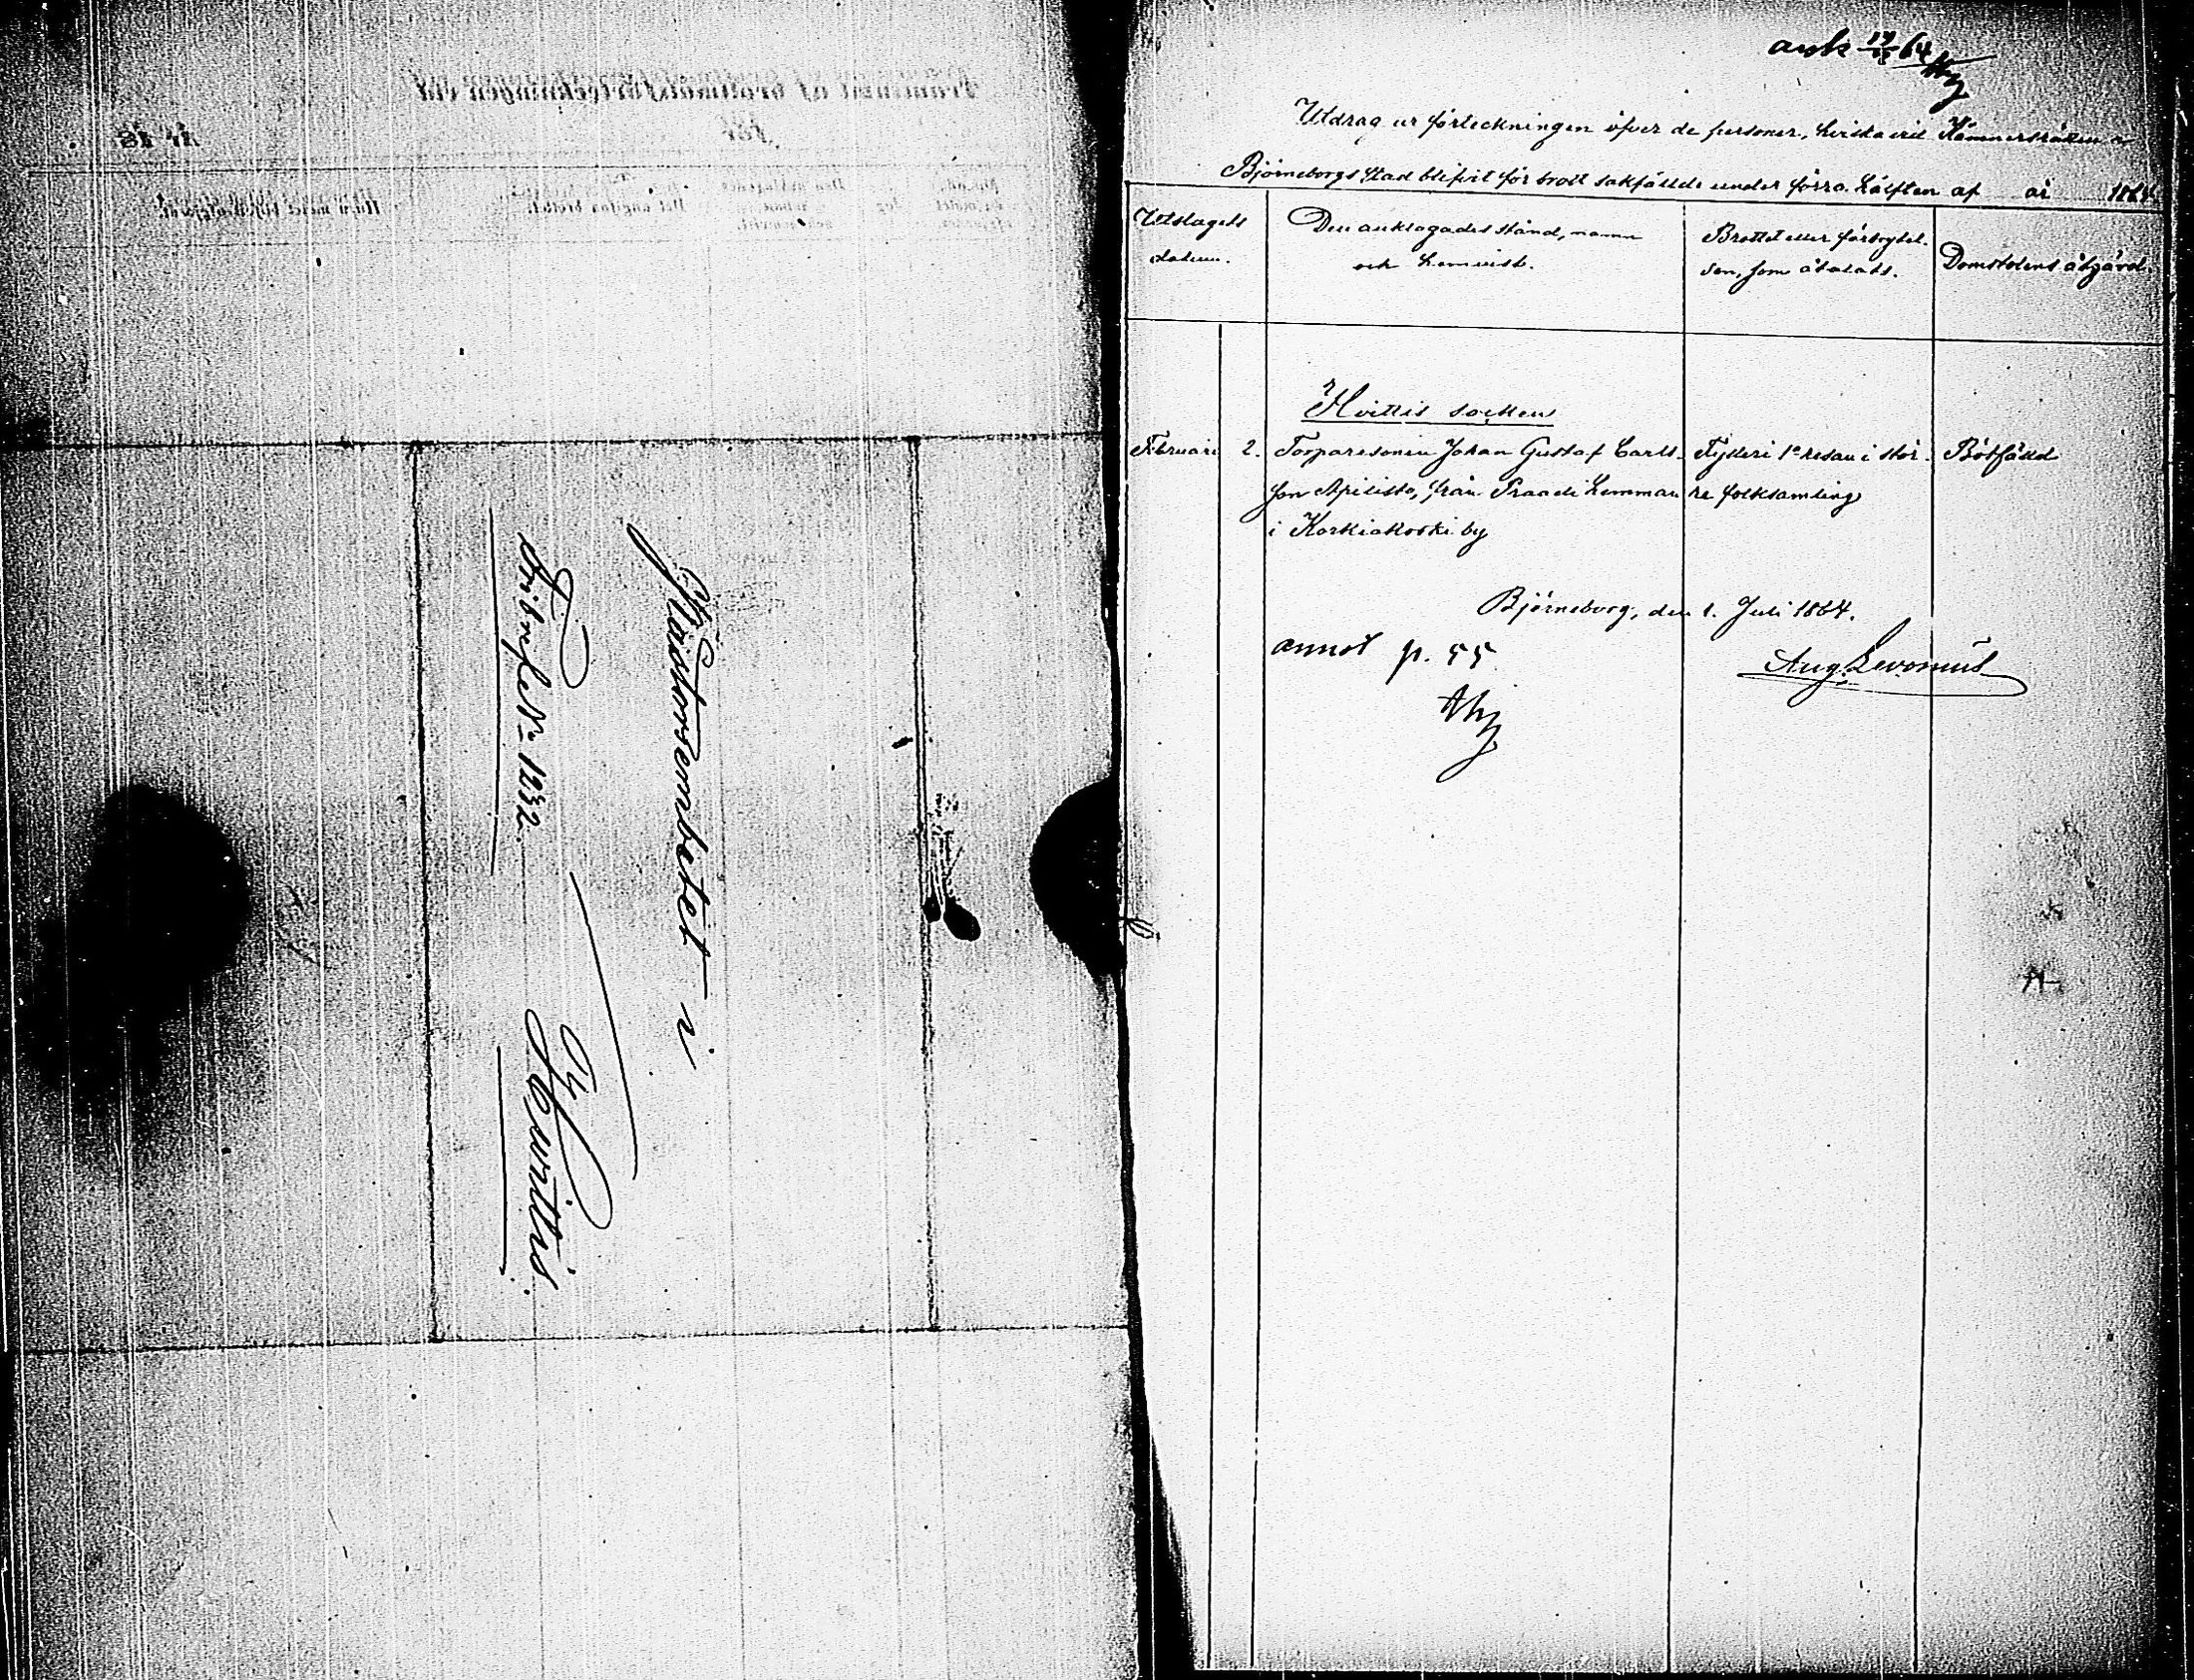 Pastorsembetet i
Huvittis
Fribref No 1232
ank 64
Utdrag ur förteckningen öfver de personer, hvilka vid Kämnersrätten i
Björneborgs stad blifvit för brott sakfällde under förra hälften af år 1864
Utslagets datum.
Den anklagades stånd, namn och hemvist.
Brottet eller förbrytelsen, som åtalats.
Domstolens åtgärd.
Hvittis socken
Februari 2. Torparesonen Johan Gustaf Carls- Fylleri 1a resan i stör- Bötfälld
son Apilisto, från Praadi hemman re folksamling
i Karkiakoski by
Björneborg, den 1. Juli 1864.
annot p. 55
Aug. Levonius